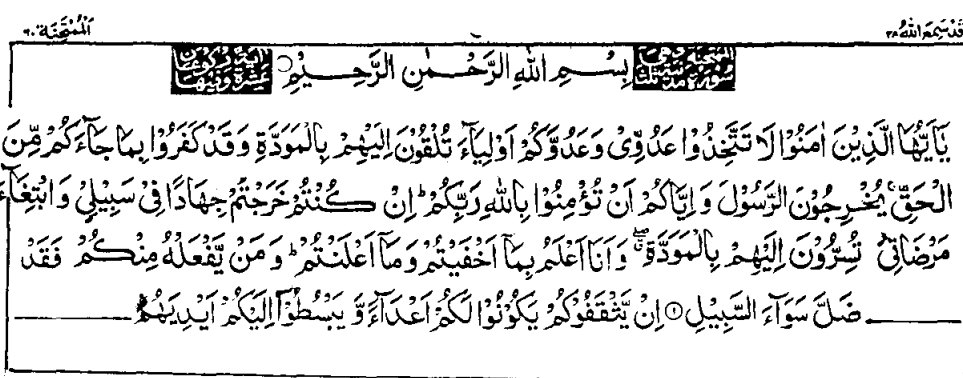 قَدْ سَمِعَ اللهُ ٢٨
اَلْمُمْتَحِنَة ٦٠
بِسْمِ اللهِ الرَّحْمٰنِ الرَّحِيْمِ
يٰۤاَيُّهَا الَّذِيْنَ اٰمَنُوْا لَا تَتَّخِذُوْا عَدُوِّىْ وَعَدُوَّكُمْ اَوْلِيَآءَ تُلْقُوْنَ اِلَيْهِمْ بِالْمَوَدَّةِ وَقَدْ كَفَرُوْا بِمَا جَآءَكُمْ مِّنَ
الْحَقِّ ۚ يُخْرِجُوْنَ الرَّسُوْلَ وَاِيَّاكُمْ اَنْ تُؤْمِنُوْا بِاللهِ رَبِّكُمْ ؕ اِنْ كُنْتُمْ خَرَجْتُمْ جِهَادًا فِىْ سَبِيْلِىْ وَابْتِغَآءَ
مَرْضَاتِىْ تُسِرُّوْنَ اِلَيْهِمْ بِالْمَوَدَّةِ ۖ وَاَنَا اَعْلَمُ بِمَاۤ اَخْفَيْتُمْ وَمَاۤ اَعْلَنْتُمْ ؕ وَمَنْ يَّفْعَلْهُ مِنْكُمْ فَقَدْ
ضَلَّ سَوَآءَ السَّبِيْلِ ۝۱ اِنْ يَّثْقَفُوْكُمْ يَكُوْنُوْا لَكُمْ اَعْدَآءً وَّيَبْسُطُوْۤا اِلَيْكُمْ اَيْدِيَهُمْ